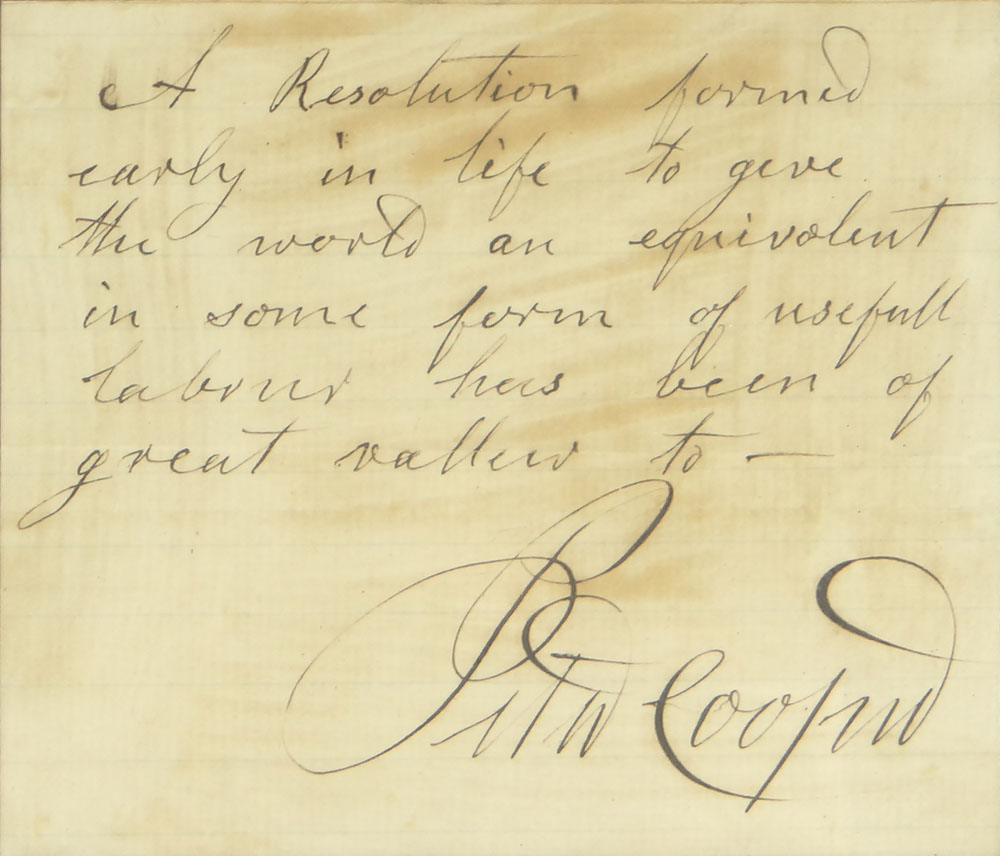 A Resolution formed
early in life to give
the world an equivalent
in some form of usefull
labour has been of
great vallew to —
Peter Cooper